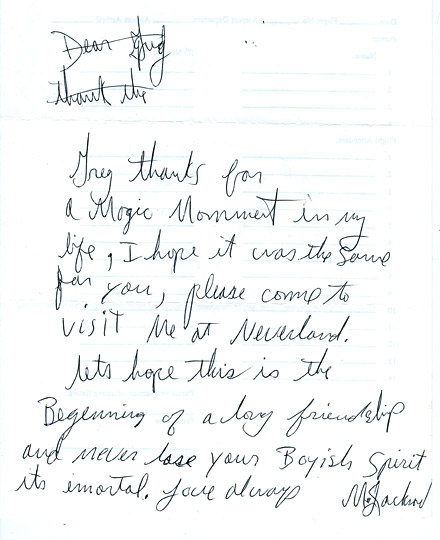 Dear Greg
thank the
Greg thanks for
a Magic Momment in my
life, I hope it was the same
for you, please come to
visit me at Neverland.
lets hope this is the
Begenning of a long friendship
and never lose your Boyish Spirit
its imortal. Love always MJackson